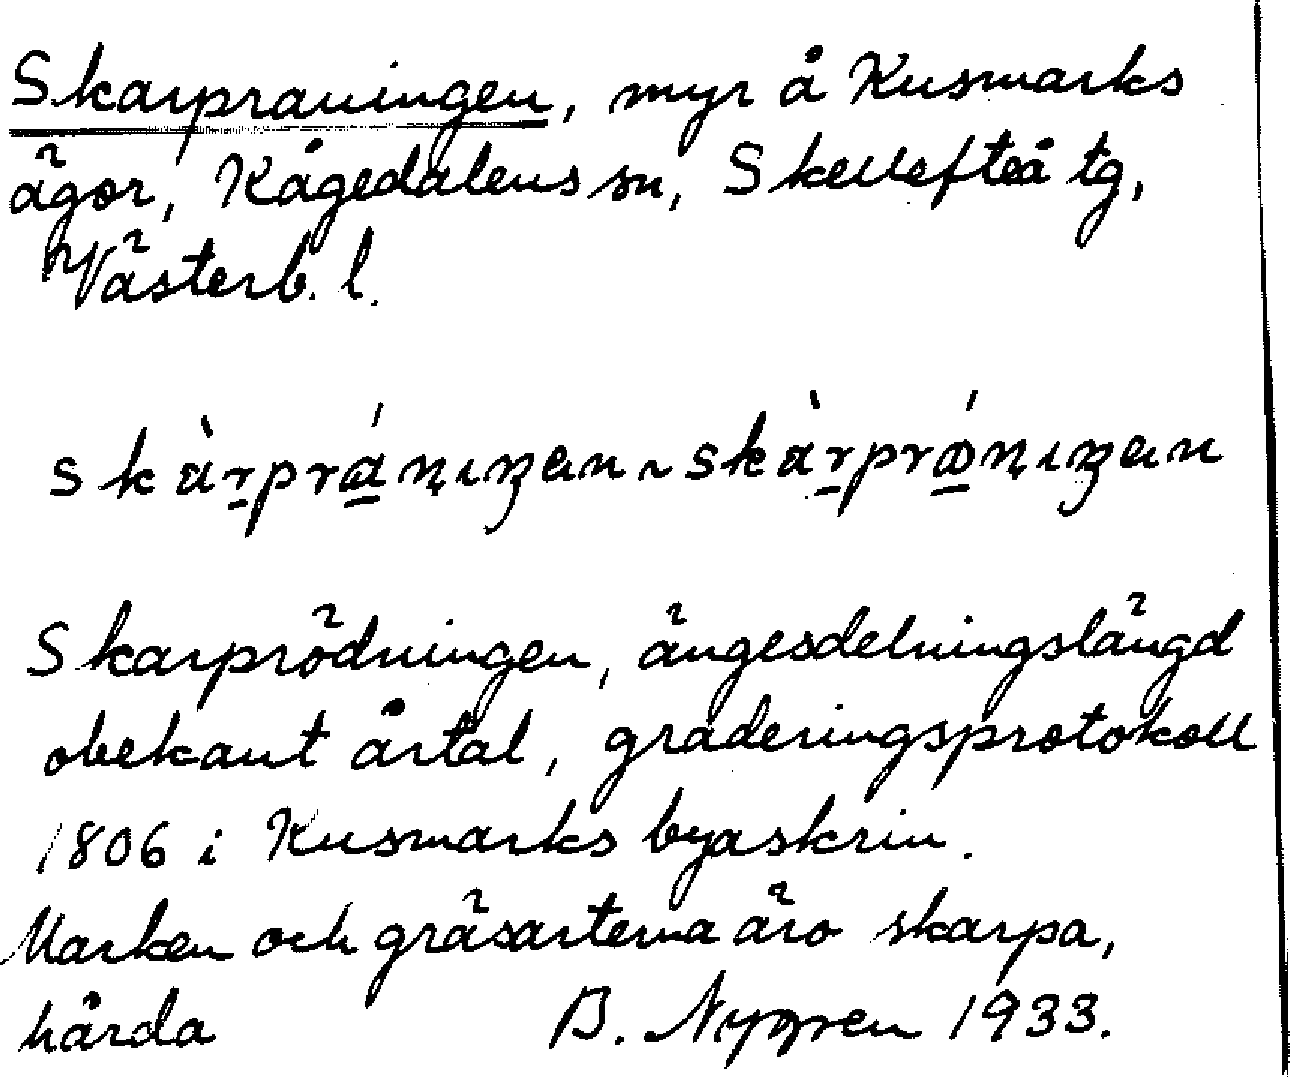 Skarpraningen, myr å Kusmarks
ägor, Kågedalens sn, Skellefteå tg,
Västerb. l.
skàr̠prá̠ṇıŋen ~ skàr̠prǿ̠ṇıŋen
Skarprödningen, ängesdelningslängd
obekant årtal, graderingsprotokoll
1806 i Kusmarks byaskrin.
Marken och gräsarterna äro skarpa,
hårda B. Nygren 1933.